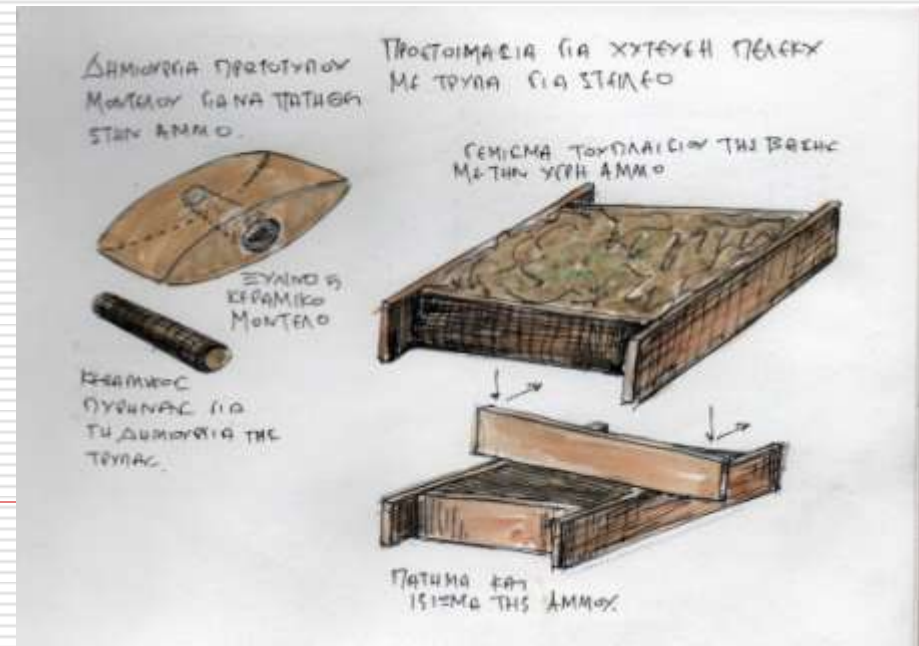 ΔΗΜΙΟΥΡΓΙΑ ΠΡΩΤΟΤΥΠΟΥ
ΜΟΝΤΕΛΟΥ ΓΙΑ ΝΑ ΠΑΤΗΘΕΙ
ΣΤΗΝ ΑΜΜΟ.
ΠΡΟΕΤΟΙΜΑΣΙΑ ΓΙΑ ΧΥΤΕΥΣΗ ΠΕΛΕΚΥ
ΜΕ ΤΡΥΠΑ ΓΙΑ ΣΤΕΙΛΕΟ
ΓΕΜΙΣΜΑ ΤΟΥ ΠΛΑΙΣΙΟΥ ΤΗΣ ΒΑΣΗΣ
ΜΕ ΤΗΝ ΥΓΡΗ ΑΜΜΟ
ΞΥΛΙΝΟ Ή
ΚΕΡΑΜΙΚΟ
ΜΟΝΤΕΛΟ
ΚΕΡΑΜΙΚΟΣ
ΠΥΡΗΝΑΣ ΓΙΑ
ΤΗ ΔΗΜΙΟΥΡΓΙΑ ΤΗΣ
ΤΡΥΠΑΣ.
ΠΑΤΗΜΑ ΚΑΙ
ΙΣΙΩΜΑ ΤΗΣ ΑΜΜΟΥ.